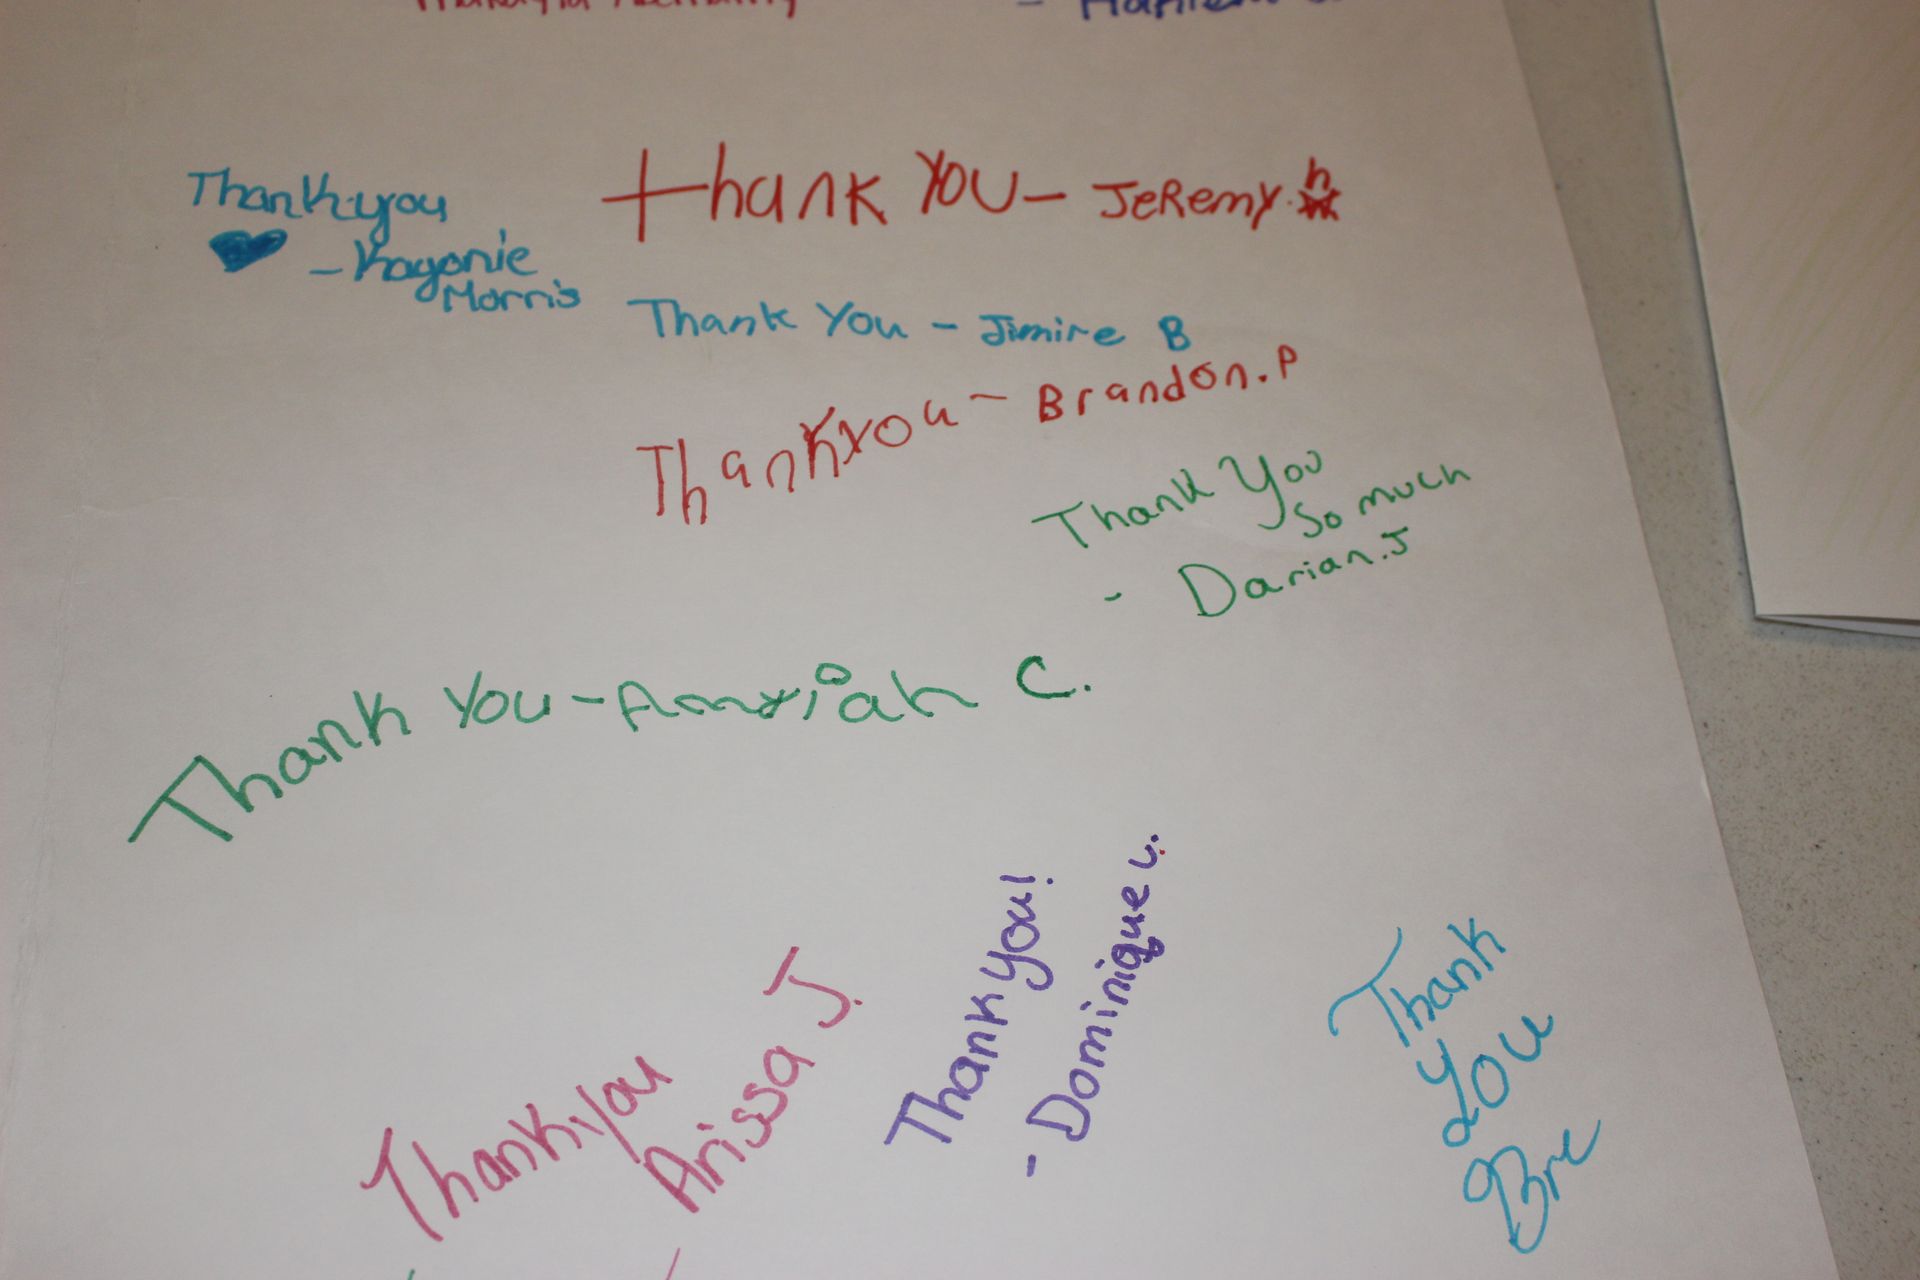 Thank you
- Kayonie
Morris
Thank You - Jeremy. h
Thank You - Jimire B
Thank You - Brandon. P
Thank You
So much
- Darian. J
Thank You - Amariah C.
Thank you
Arissa J.
Thank You!
- Dominique v.
Thank
You
Bre